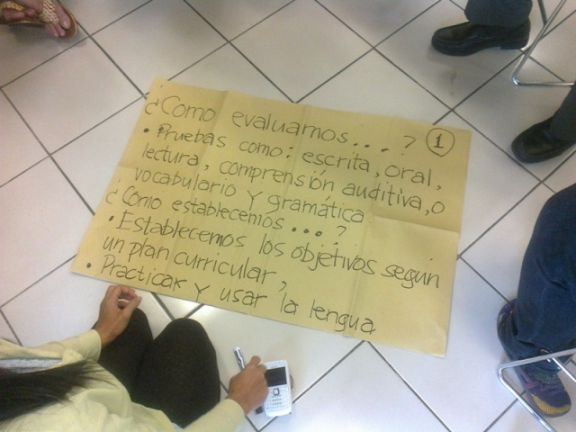 ¿Como evaluamos...? 1
• Pruebas como: escrita, oral,
lectura, comprensión auditiva, o
vocabulario y gramática
¿Cómo establecemos...?
• Establecemos los objetivos según
un plan curricular,
• Practicar y usar la lengua